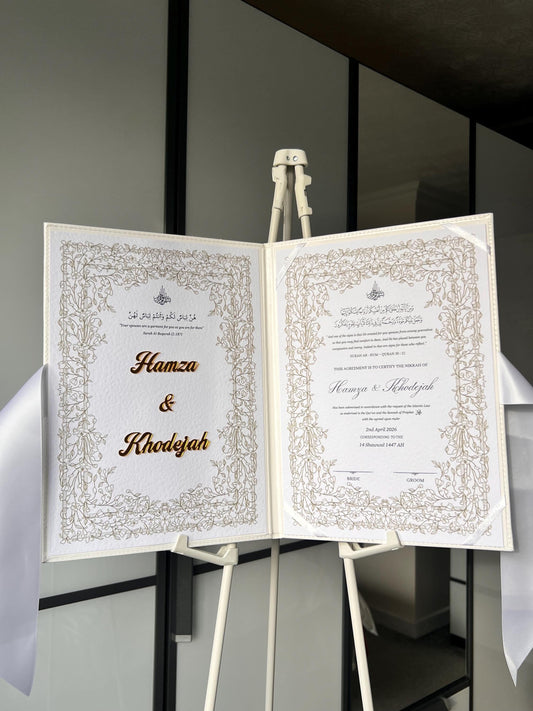 هُنَّ لِبَاسٌ لَّكُمْ وَأَنتُمْ لِبَاسٌ لَّهُنَّ
"Your spouses are a garment for you as you are for them"
Surah Al Baqarah (2:187)
Hamza
&
Khodejah
"And one of the signs is that He created for you spouses from among yourselves
so that you may find comfort in them. And He has placed between you
compassion and mercy. Indeed in this are signs for those who reflect."
SURAH AR - RUM - QURAN 30 : 21
THIS AGREEMENT IS TO CERTIFY THE NIKKAH OF
Hamza & Khodejah
Has been solemnised in accordance with the request of the Islamic Law
as endorsed in the Qur'an and the Sunnah of Prophet ﷺ
with the agreed upon mahr
2nd April 2026
CORRESPONDING TO THE
14 Shawwal 1447 AH
BRIDE GROOM